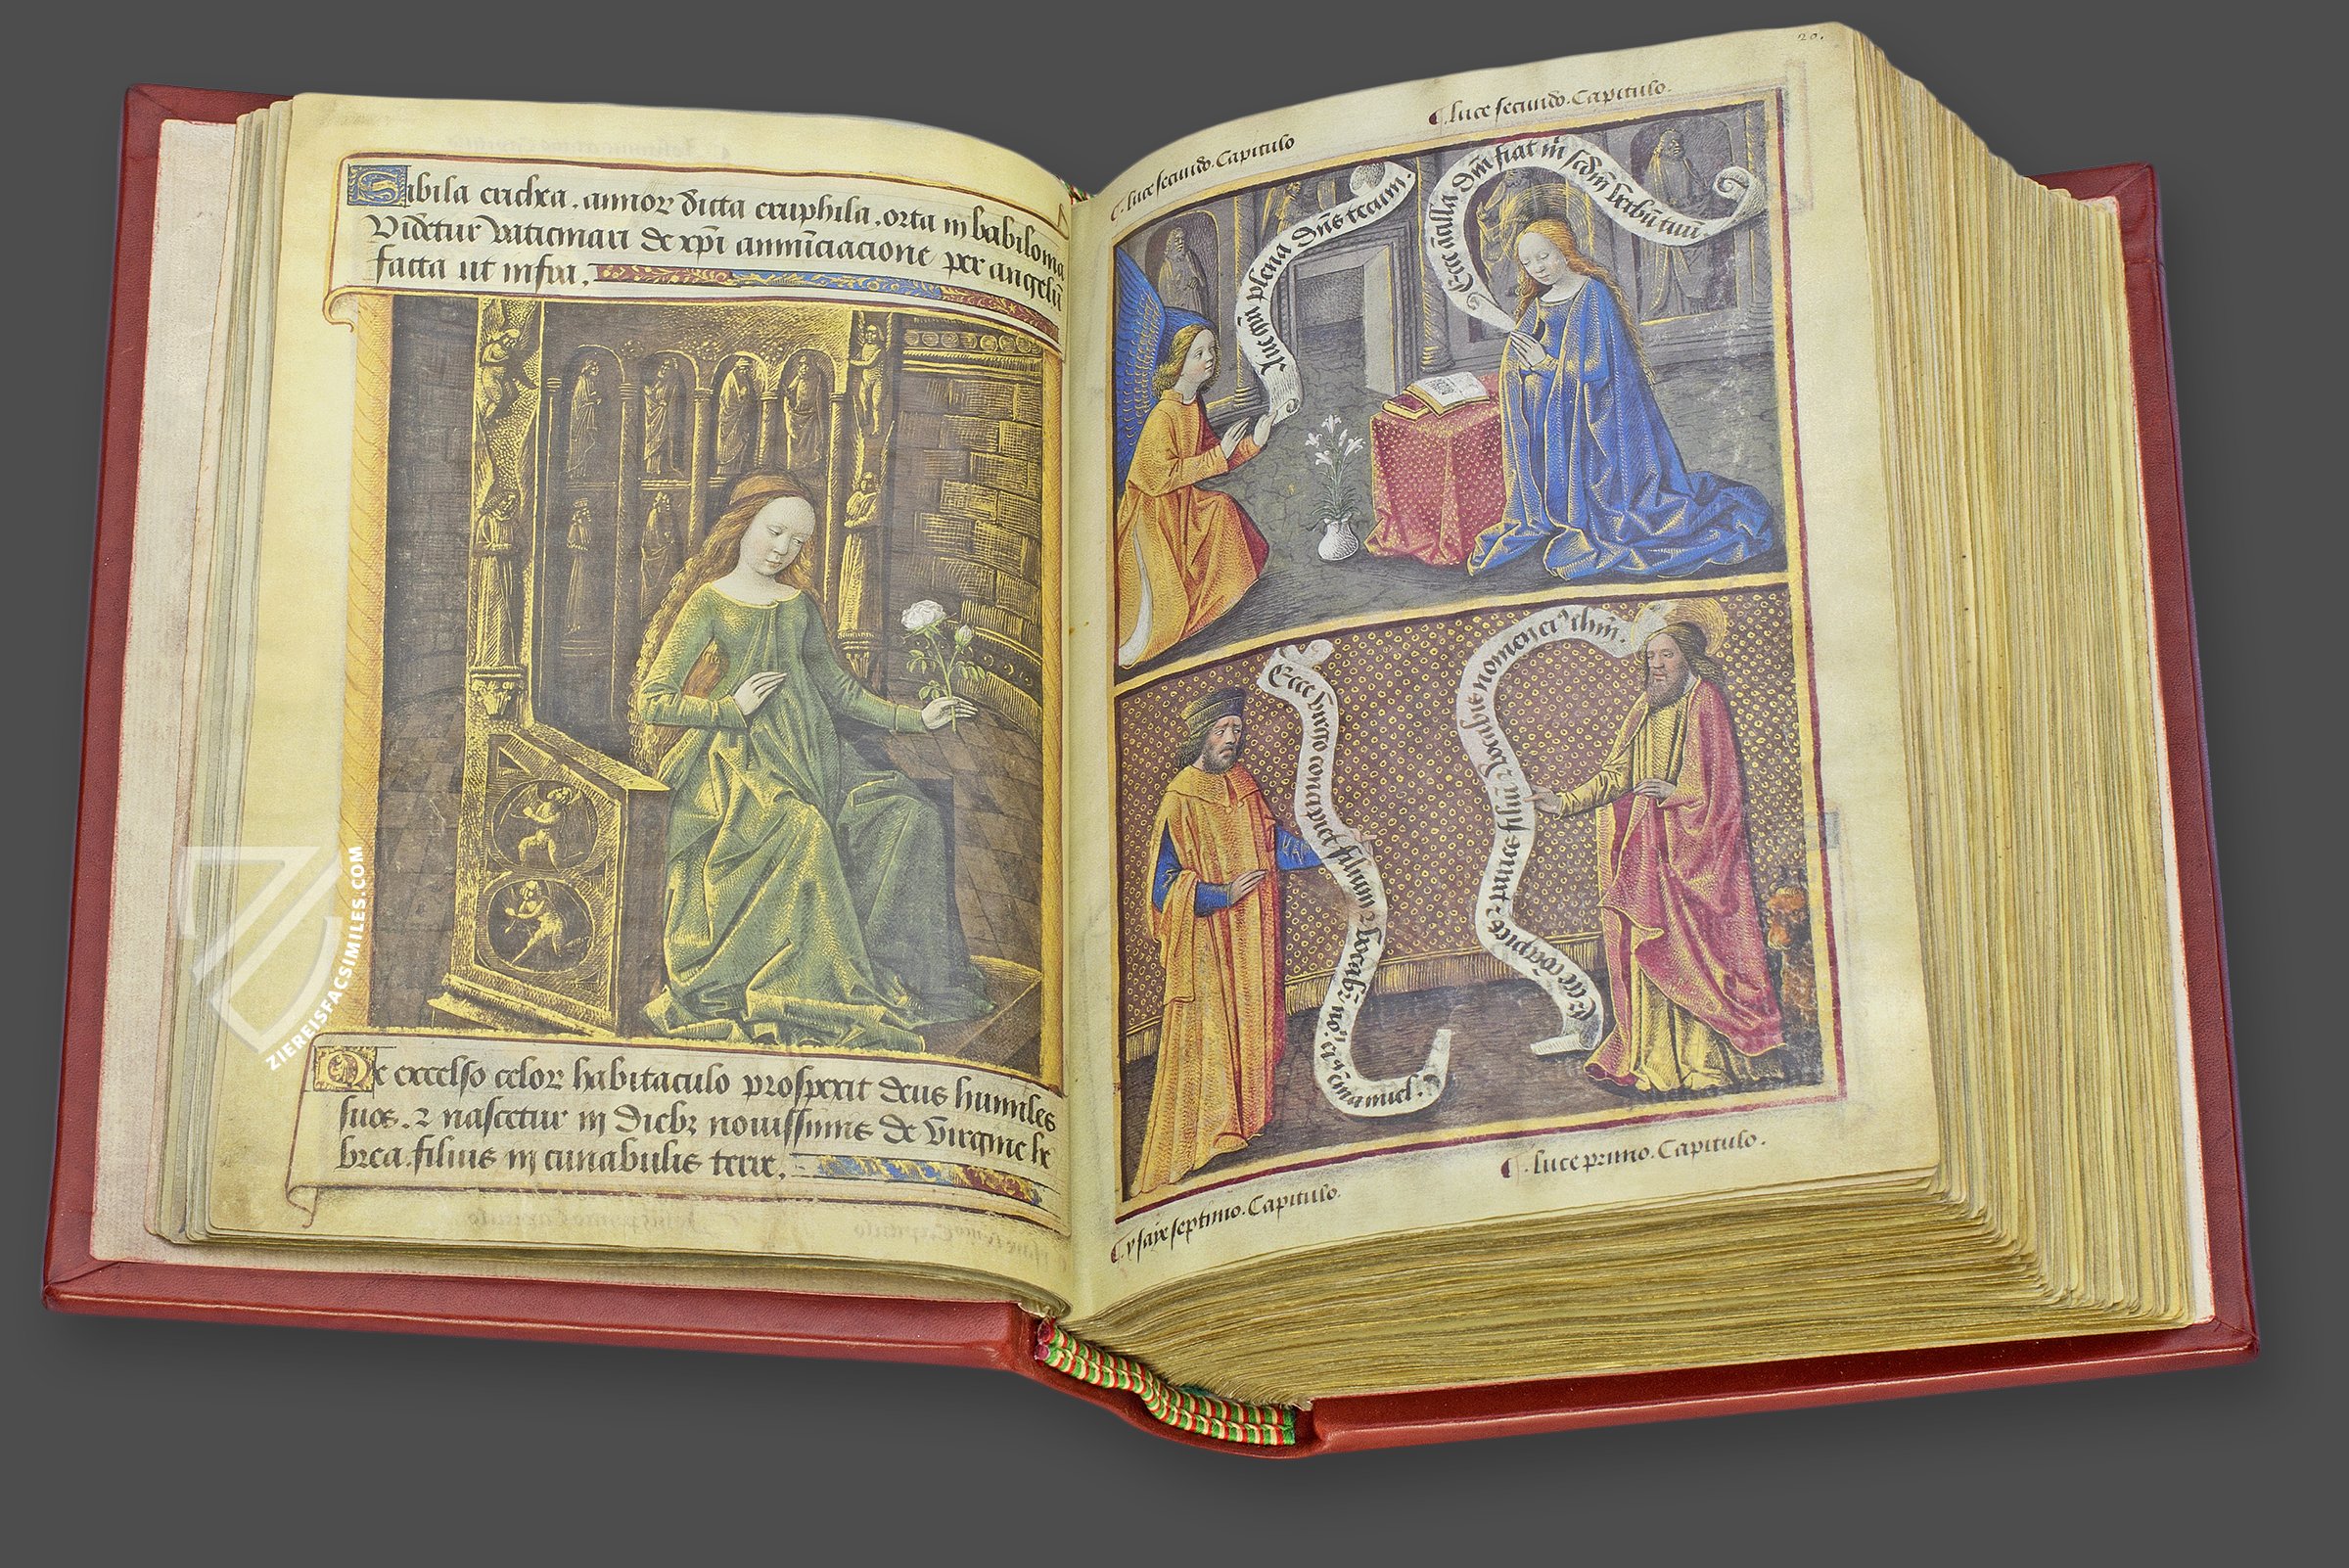 Sibila erichea. annor dicta eruphila. orta in babilonia
Videtur vaticinari de xpi annūciacione per angelū
facta ut infra.
De excelso celor habitaculo prospexit deus humiles
suos. ⁊ nascetur in diebȝ nouissimis de virgine he
brea. filius in cunabulis terre.
20.
¶. luce secundo. Capitulo
¶. luce secundo. Capitulo.
Aue grā plena dn̄s tecum.
Ecce ācilla dn̄i fiat m̄ scdm̄ verbū tuū.
Ecce virgo concipiet filium ⁊ vocabr̄ nō. ei᷒ emanuel.
Ecce cōcipies ⁊ paries filiū ⁊ vocabis nomen ei᷒ ihm̄.
¶. ysaie septimo. Capitulo.
¶. luce primo. Capitulo.
ZIEREISFACSIMILES.COM